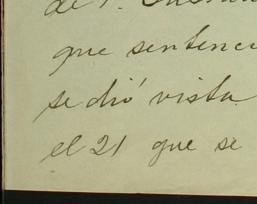 de
que sentenci
se dió vista
el 21 que se